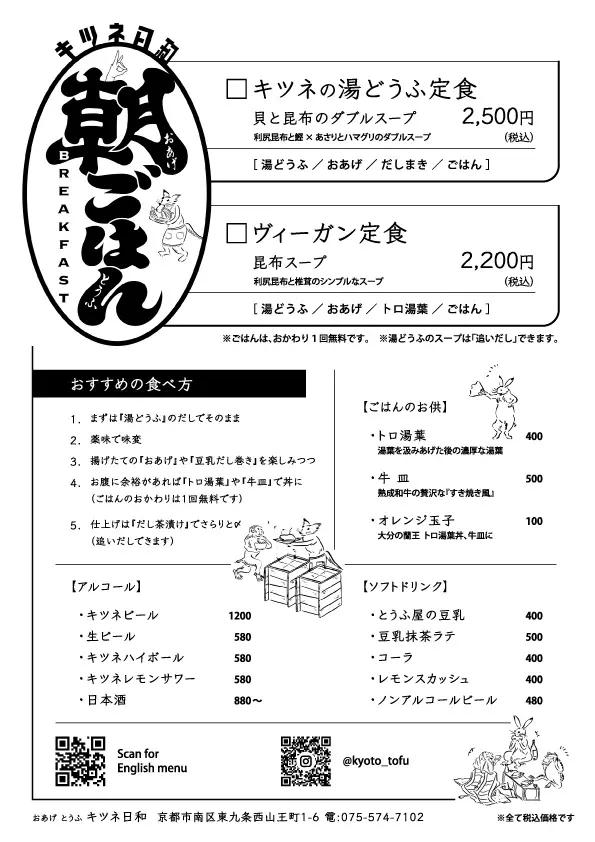 キツネ日和
朝ごはん
おあげ
とうふ
BREAKFAST
□ キツネの湯どうふ定食
貝と昆布のダブルスープ 2,500円
利尻昆布と鰹 × あさりとハマグリのダブルスープ (税込)
[ 湯どうふ ／ おあげ ／ だしまき ／ ごはん ]
□ ヴィーガン定食
昆布スープ 2,200円
利尻昆布と椎茸のシンプルなスープ (税込)
[ 湯どうふ ／ おあげ ／ トロ湯葉 ／ ごはん ]
※ごはんは、おかわり１回無料です。 ※湯どうふのスープは「追いだし」できます。
おすすめの食べ方
1. まずは『湯どうふ』のだしでそのまま
2. 薬味で味変
3. 揚げたての『おあげ』や『豆乳だし巻き』を楽しみつつ
4. お腹に余裕があれば『トロ湯葉』や『牛皿』で丼に
（ごはんのおかわりは1回無料です）
5. 仕上げは『だし茶漬け』でさらりと〆
（追いだしできます）
【ごはんのお供】
・トロ湯葉 400
湯葉を汲みあげた後の濃厚な湯葉
・牛 皿 500
熟成和牛の贅沢な『すき焼き風』
・オレンジ玉子 100
大分の蘭王 トロ湯葉丼、牛皿に
【アルコール】
・キツネビール 1200
・生ビール 580
・キツネハイボール 580
・キツネレモンサワー 580
・日本酒 880〜
【ソフトドリンク】
・とうふ屋の豆乳 400
・豆乳抹茶ラテ 500
・コーラ 400
・レモンスカッシュ 400
・ノンアルコールビール 480
Scan for
English menu
@kyoto_tofu
おあげ とうふ キツネ日和 京都市南区東九条西山王町1-6 電:075-574-7102
※全て税込価格です